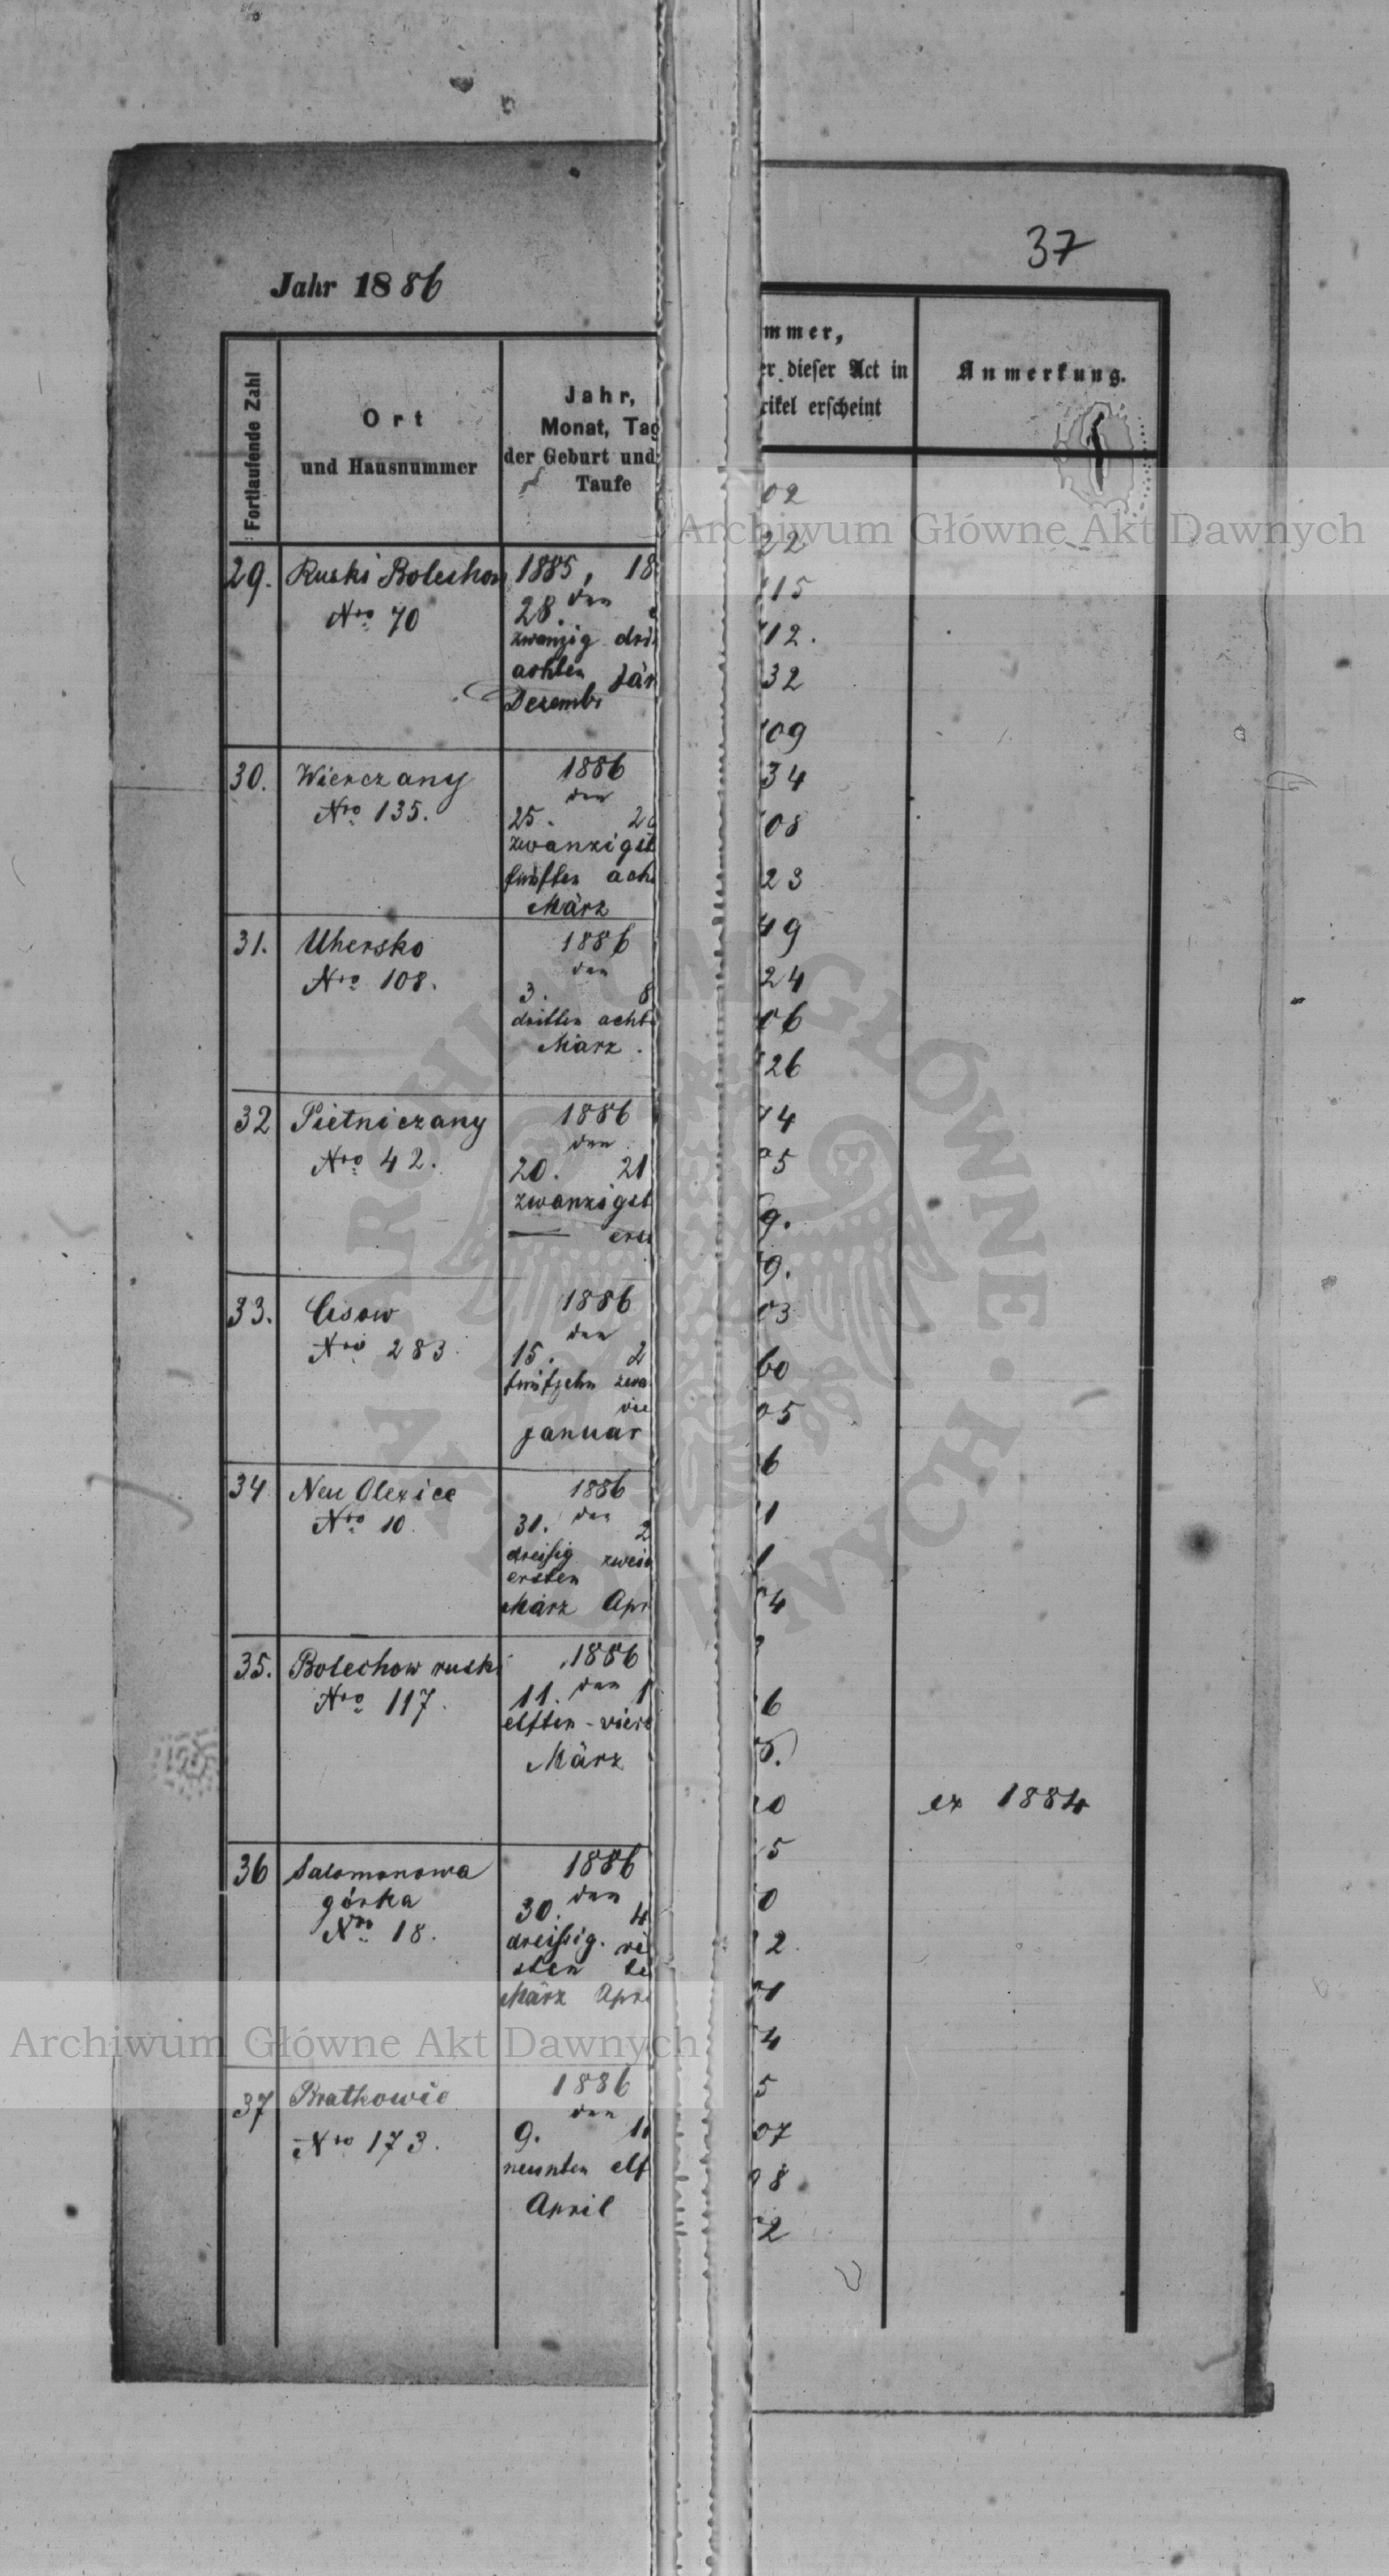 Jahr 1886
Fortlaufende Zahl
Ort
und Hausnummer
Jahr,
Monat, Tag
der Geburt und
Taufe
29.
Ruski Bolechow
Nro 70
1885, 18
28. den
zwanzig dri
achten Jän
Dezemb
30.
Wierczany
Nro 135.
1886
den
25. 2
zwanzigst
fünften ach
März
31.
Uhersko
Nro 108.
1886
den
3. 8
dritten acht
März.
32
Pietniczany
Nro 42.
1886
den
20. 21
zwanzigst
— ers
33.
Cisow
Nro 283
1886
den
15. 2
fünfzehn zwa
vie
januar
34
Neu Olexice
Nro 10
1886
31. den 2
dreißig zwei
ersten
März Apr
35.
Bolechow ruski
Nro 117.
1886
11. den 1
elften - vier
März
36
Salomonowa
górka
Nro 18.
1886
30. den 4
dreißig. vie
sten te
März Apr
37
Bratkowie
Nro 173.
1886
den
9. 11
neunten elf
April
37
mmer,
er dieser Act in
rikel erscheint
Anmerkung.
02
22
15
12.
32
09
34
08
23
49
24
06
26
74
05
9.
9.
03
60
05
6
1
1
4
6
5.
0
ex 1884
5
0
2
1
4
5
07
8
2
Archiwum Główne Akt Dawnych
Archiwum Główne Akt Dawnych
ARCHIWUM GŁÓWNE AKT DAWNYCH